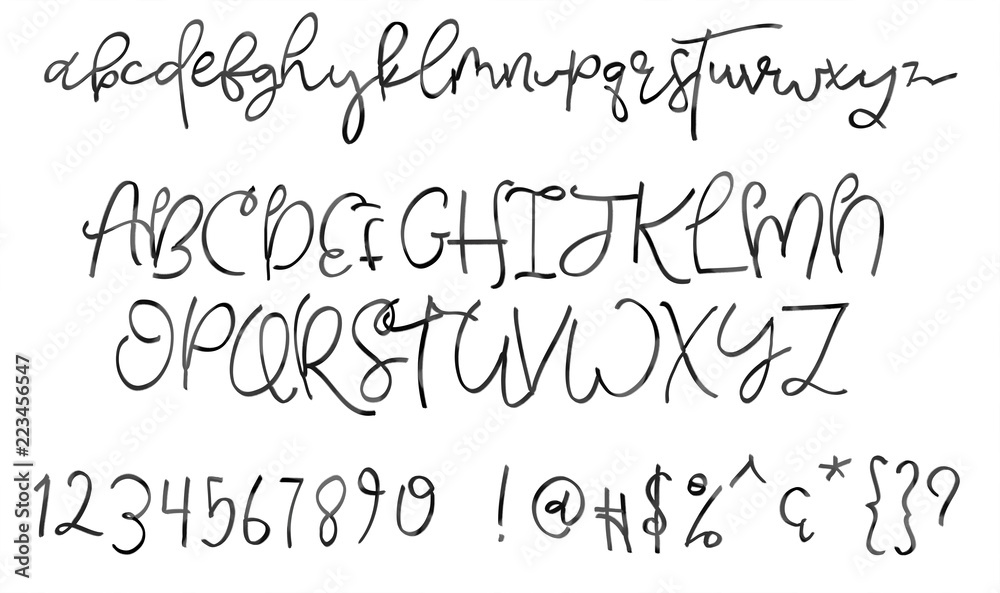 abcdefghijklmnopqrstuvwxyz
ABCDEFGHIJKLMN
OPQRSTUVWXYZ
1234567890 !@#$%^&*{}?
Adobe Stock | #223456547